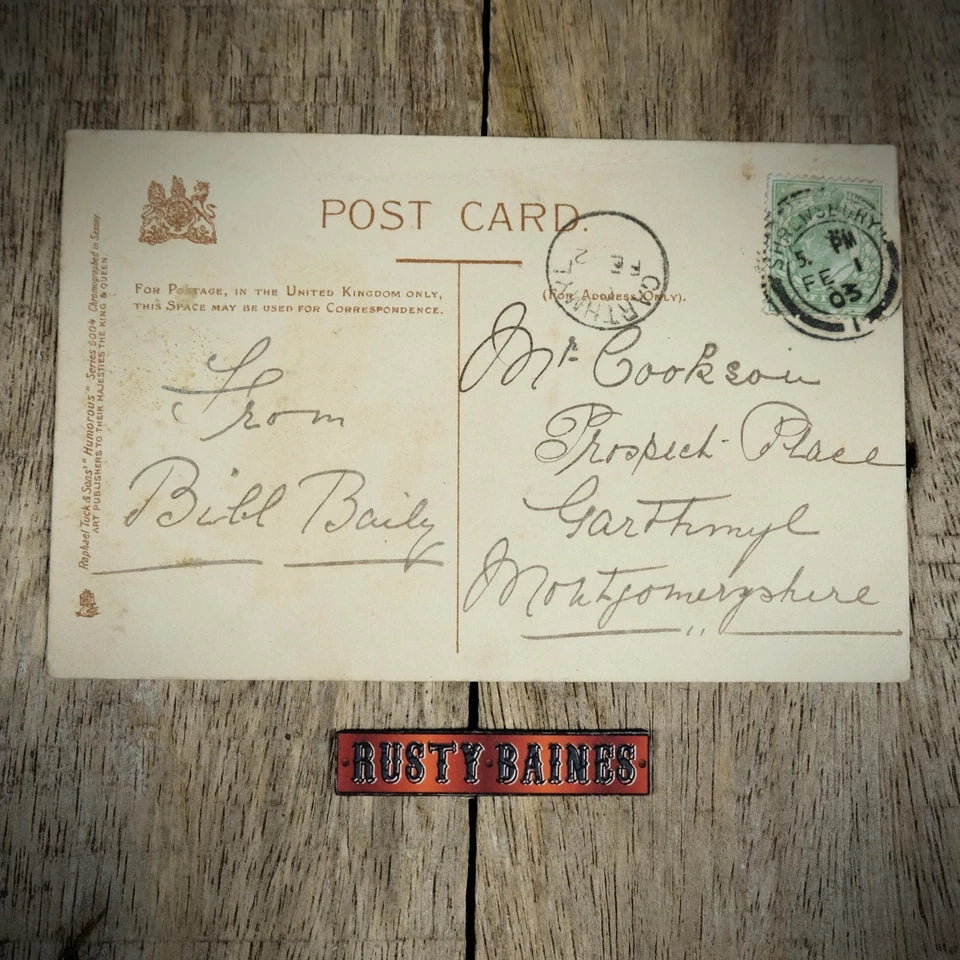 POST CARD.
FOR POSTAGE, IN THE UNITED KINGDOM ONLY,
THIS SPACE MAY BE USED FOR CORRESPONDENCE.
(FOR ADDRESS ONLY).
Raphael Tuck & Sons' "Humorous" Series 6004 Chromographed in Saxony.
ART PUBLISHERS TO THEIR MAJESTIES THE KING & QUEEN.
GARTHMYL
FE 2
SHREWSBURY
5. PM
FE 1
03
1
From
Bill Baily
Mr Cookson
Prospect Place
Garthmyl
Montgomeryshire
RUSTY BAINES